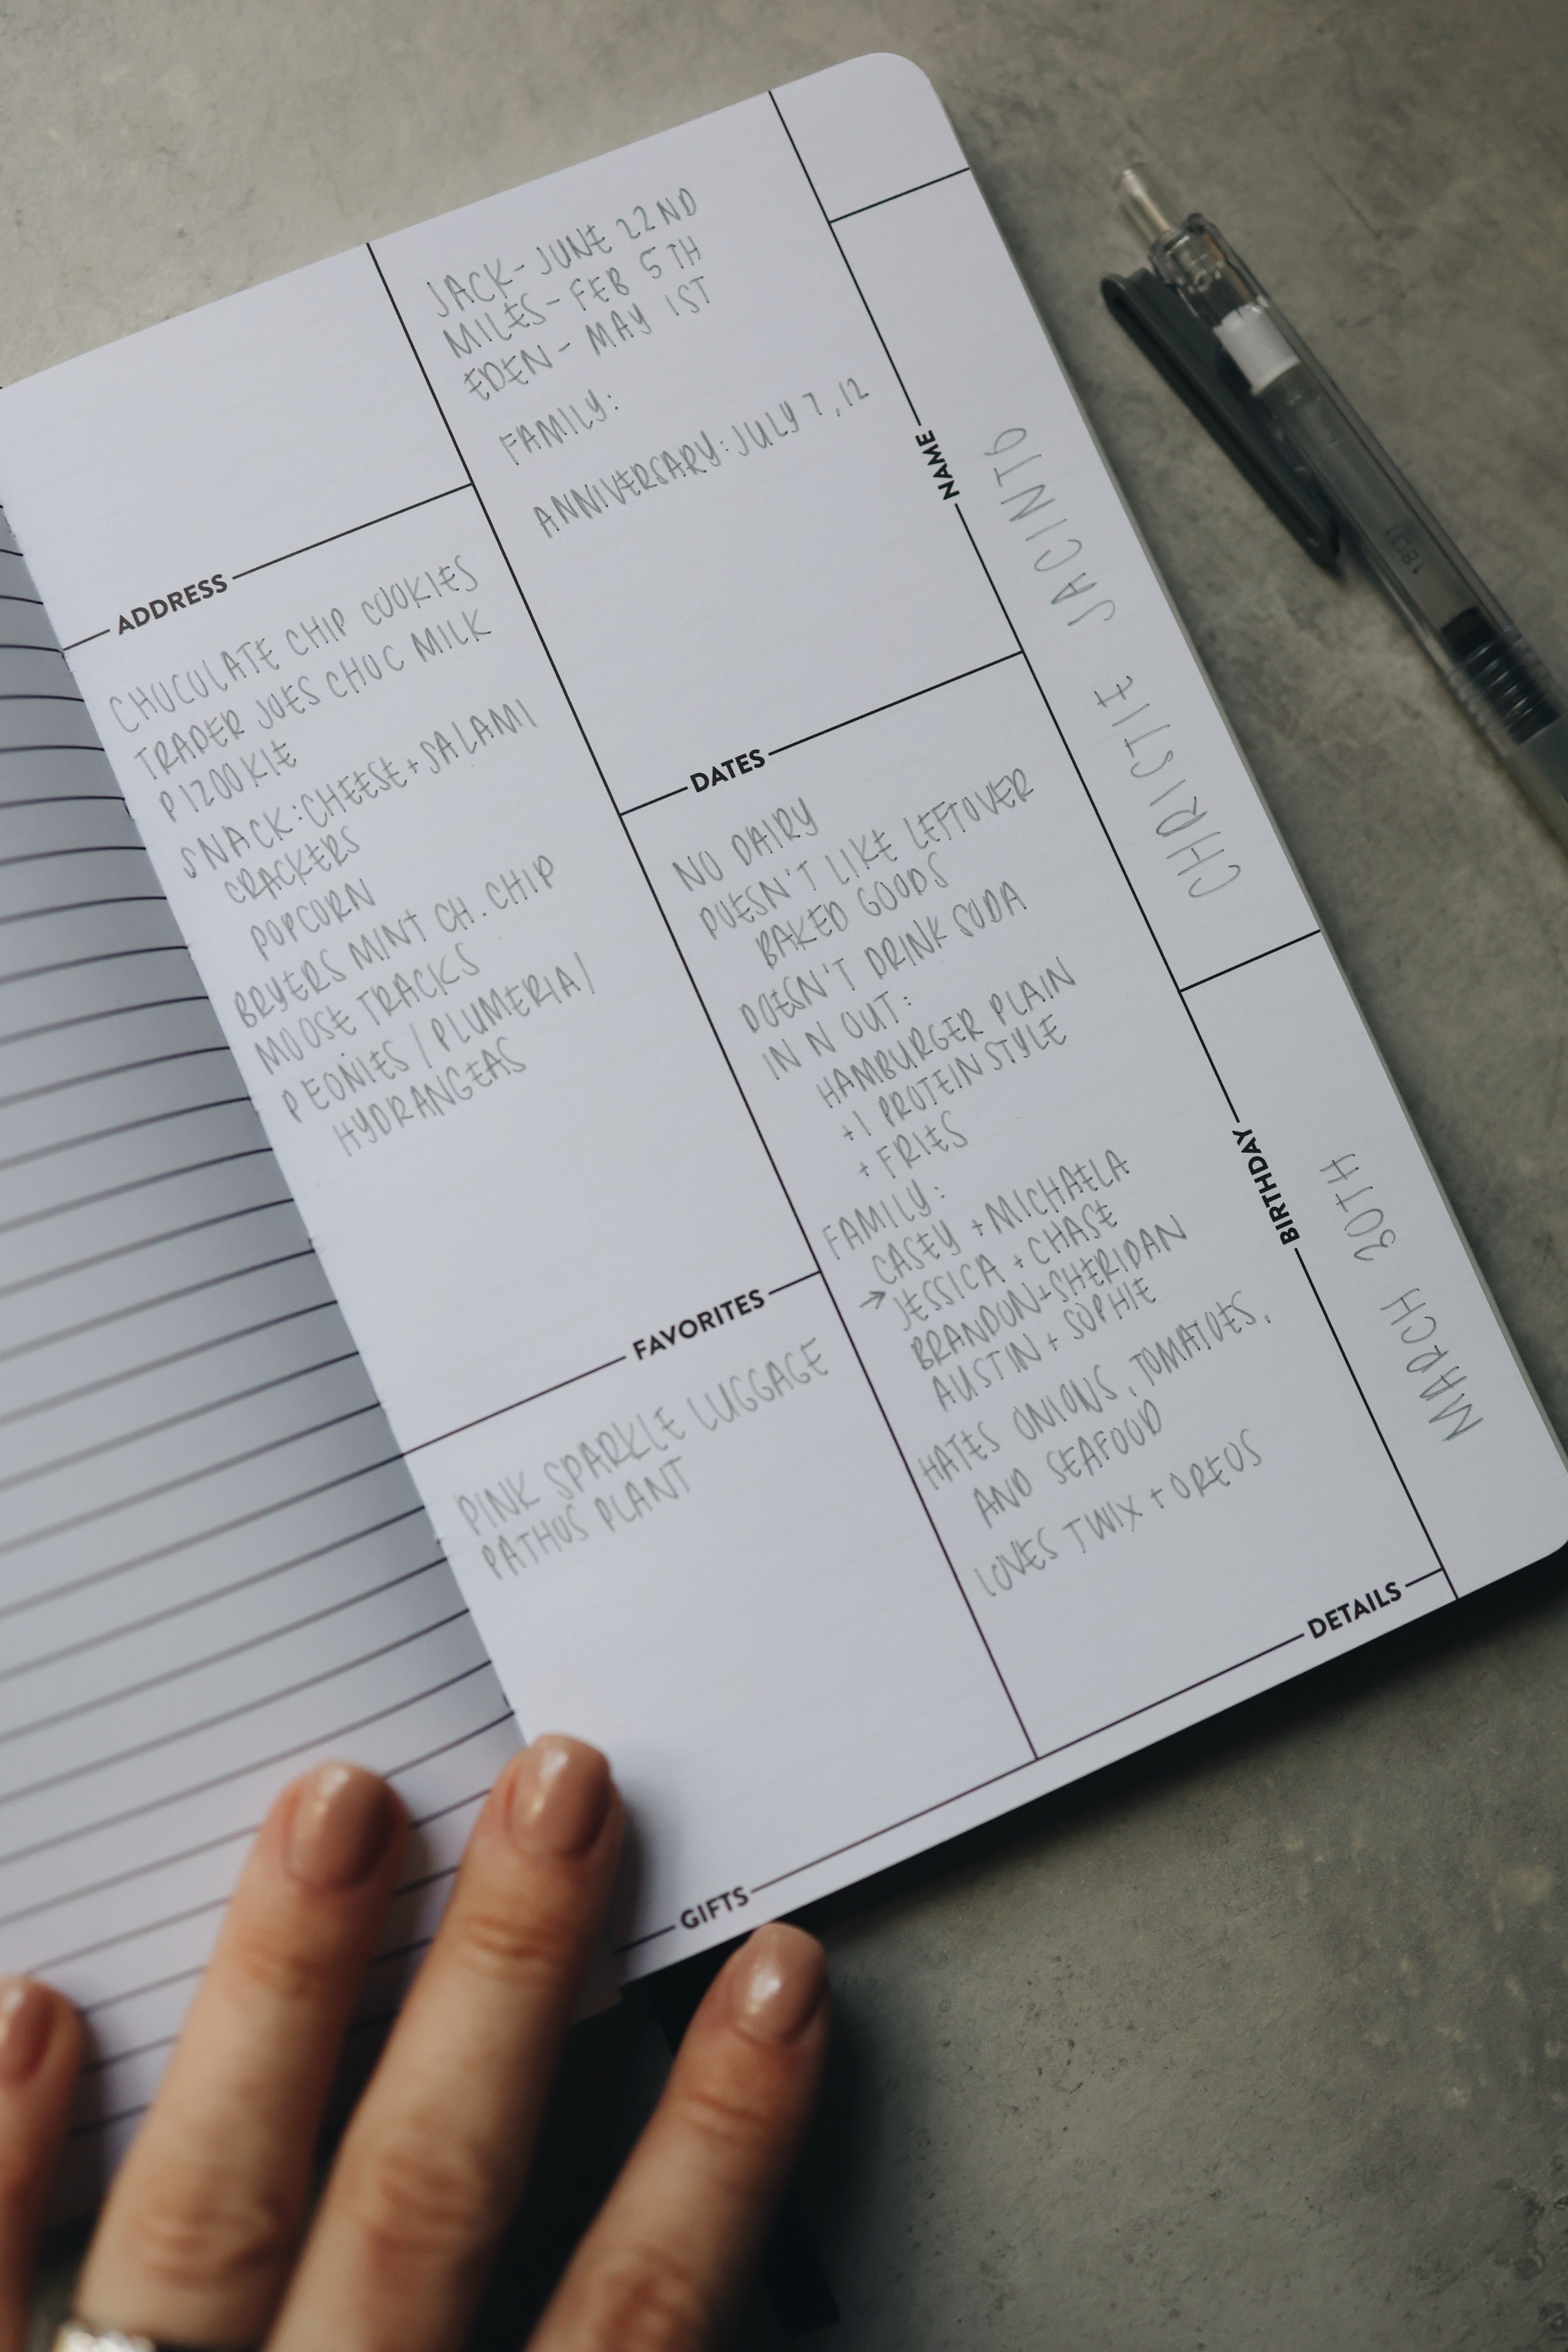 NAME
CHRISTIE JACINTO
BIRTHDAY
MARCH 30TH
JACK - JUNE 22ND
MILES - FEB 5TH
EDEN - MAY 1ST
FAMILY:
ANNIVERSARY: JULY 7, 12
DATES
NO DAIRY
DOESN'T LIKE LEFTOVER
BAKED GOODS
DOESN'T DRINK SODA
IN N OUT:
HAMBURGER PLAIN
+1 PROTEIN STYLE
+ FRIES
FAMILY:
CASEY + MICHAELA
→ JESSICA + CHASE
BRANDON + SHERIDAN
AUSTIN + SOPHIE
HATES ONIONS, TOMATOES,
AND SEAFOOD
LOVES TWIX + OREOS
DETAILS
ADDRESS
CHOCOLATE CHIP COOKIES
TRADER JOES CHOC MILK
PIZOOKIE
SNACK: CHEESE + SALAMI
CRACKERS
POPCORN
BRYERS MINT CH. CHIP
MOOSE TRACKS
PEONIES / PLUMERIA /
HYDRANGEAS
FAVORITES
PINK SPARKLE LUGGAGE
PATHOS PLANT
GIFTS